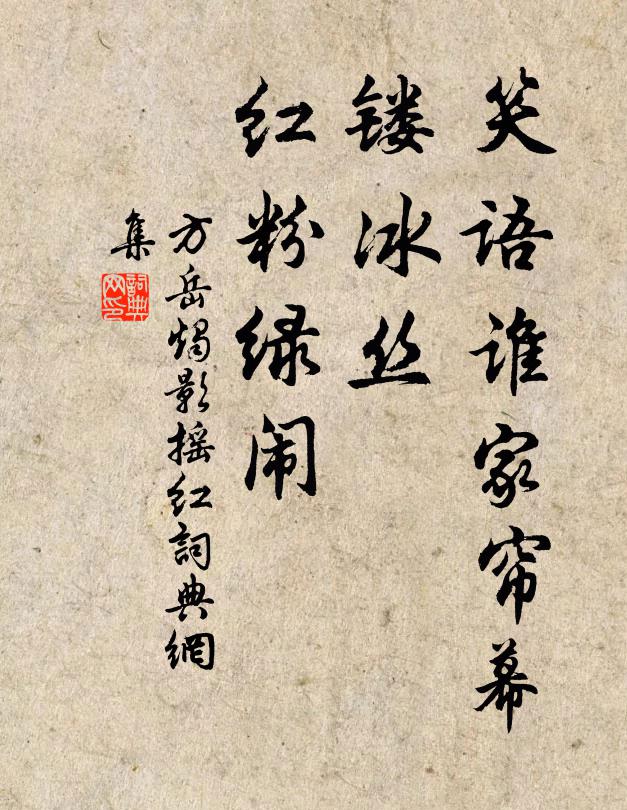 笑语谁家帘幕
镂冰丝
红粉绿闹
方岳烛影摇红詞典網
集
詞典网印